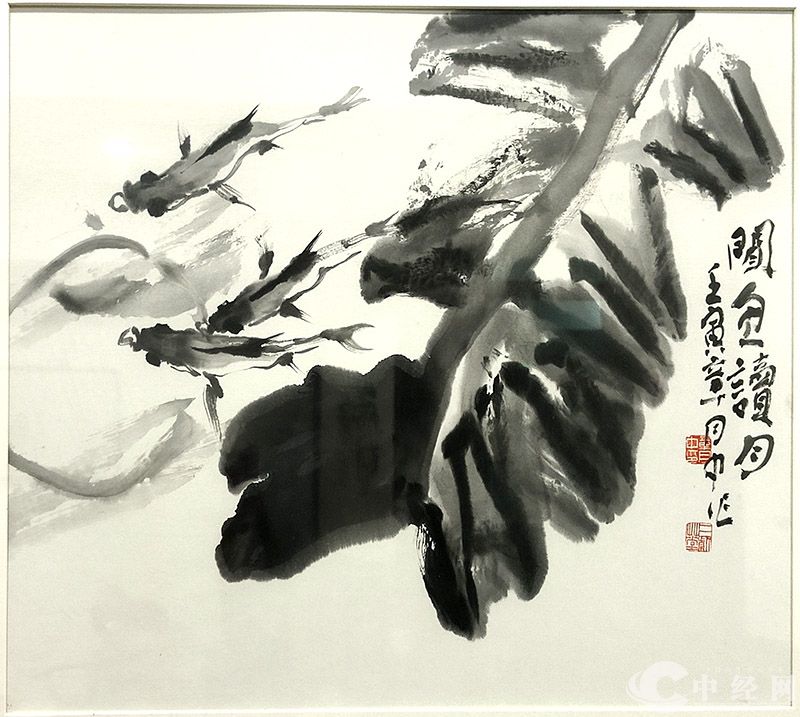 魚讀月
壬寅章月中作
中经网